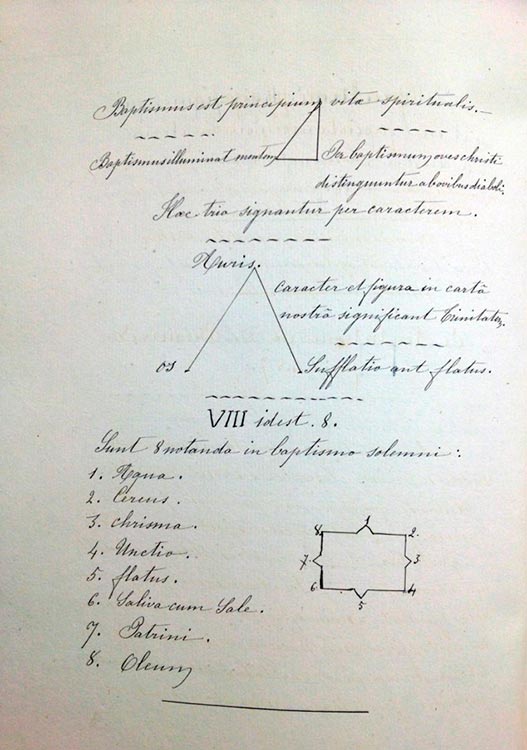 Baptismus est principium vitæ spiritualis.
Baptismus illuminat mentem Per baptismum, oves christi
distinguuntur ab ovibus diaboli.
Hæc tria signantur per caracterem.
Auris.
Caracter et figura in cartâ
nostrâ significant Trinitatem.
os
Sufflatio aut flatus.
VIII idest. 8.
Sunt 8 notanda in baptismo solemni:
1. Aqua.
2. Cereus.
3. Chrisma.
4. Unctio.
5. flatus.
6. Saliva cum Sale.
7. Patrini.
8. Oleum
8 1 2
7 3
6 5 4